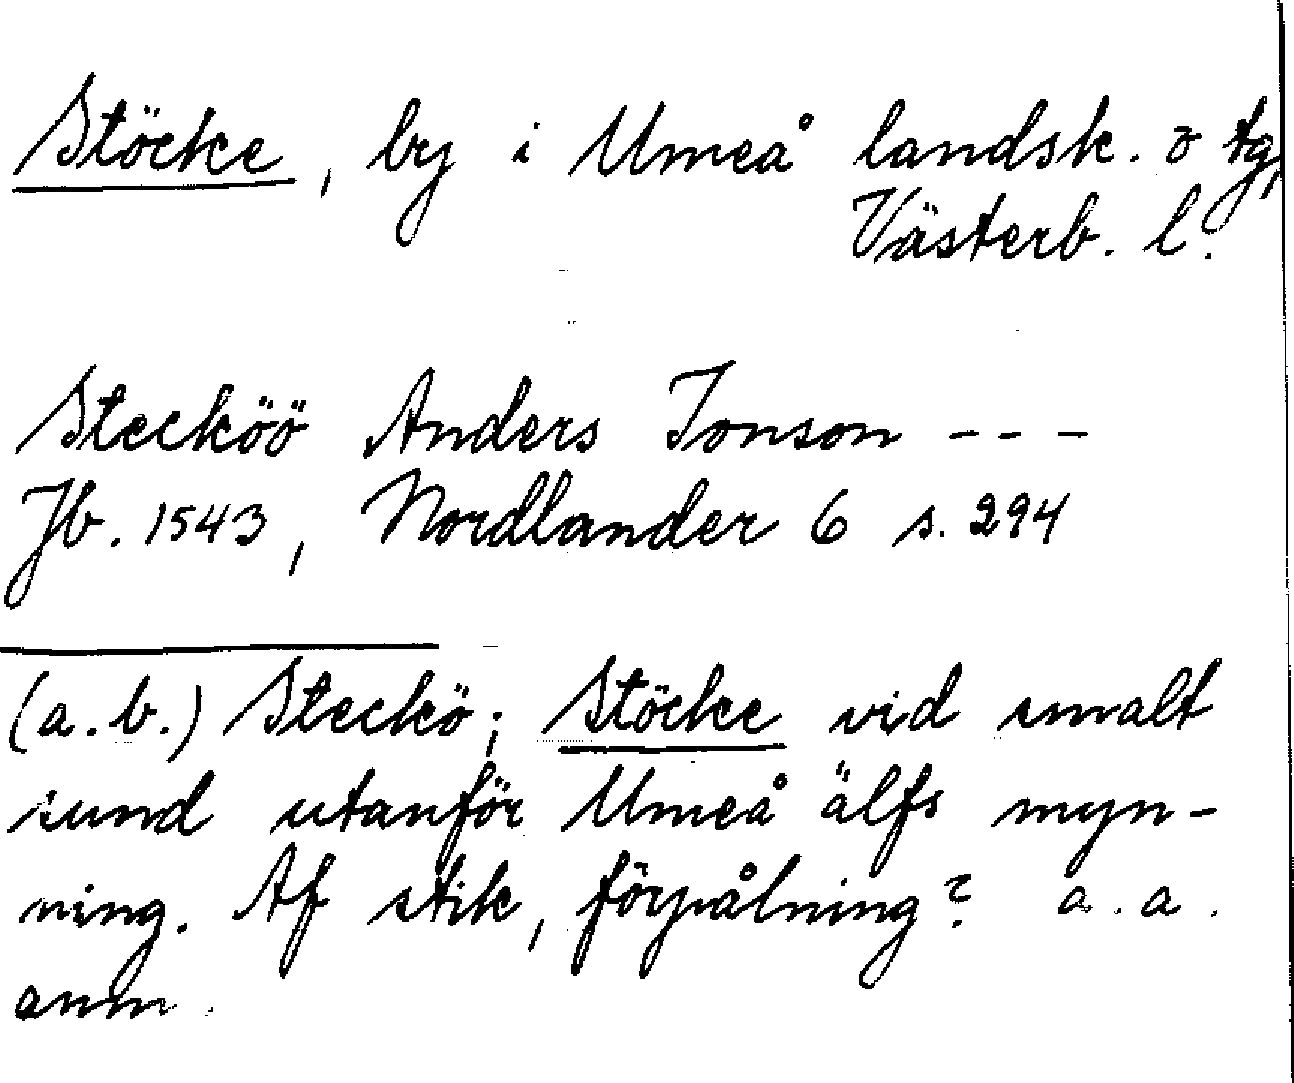 Stöcke, by i Umeå landsk. o tg,
Västerb. l.
Steckøö Anders Jonson ---
Jb. 1543, Nordlander 6 s. 294
(a.b.) Steckö; Stöcke vid smalt
sund utanför Umeå älfs myn-
ning. Af stik, förpålning? a.a.
anm.